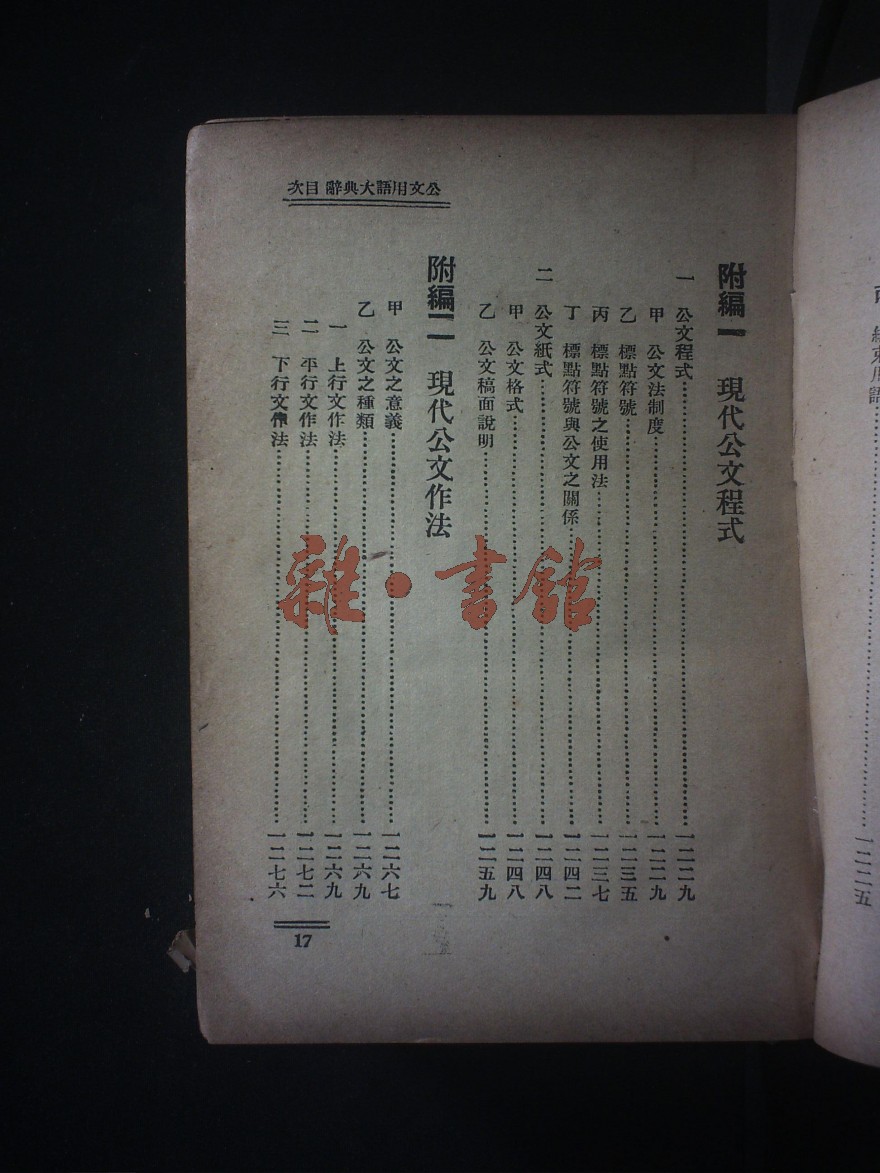 用語……一二二五
公文用語大典辭 目次
附編一 現代公文程式
一 公文程式……一二二九
甲 公文法制度……一二二九
乙 標點符號……一二三五
丙 標點符號之使用法……一二三七
丁 標點符號與公文之關係……一二四二
二 公文紙式……一二四八
甲 公文格式……一二四八
乙 公文稿面說明……一二五九
附編二 現代公文作法
甲 公文之意義……一二六七
乙 公文之種類……一二六九
一 上行文作法……一二六九
二 平行文作法……一二七二
三 下行文作法……一二七六
17
雜·書館